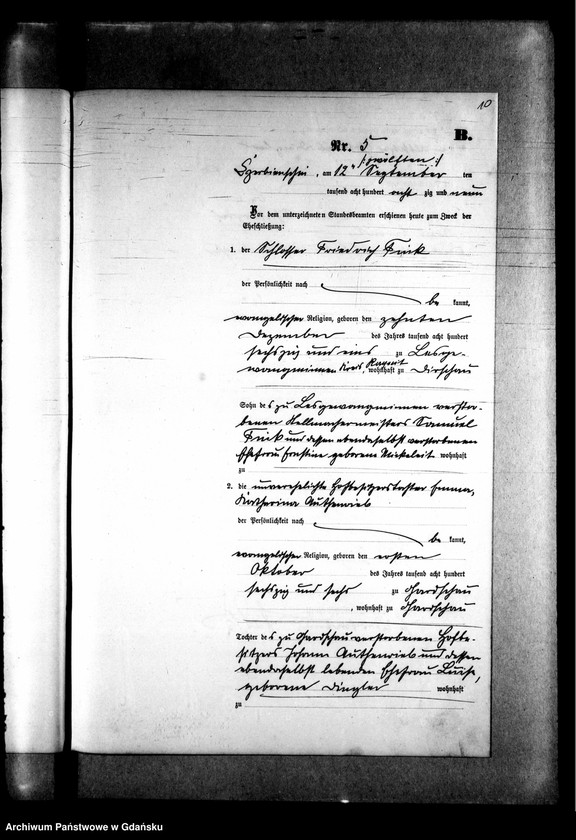 10
B.
Nr. 5
/: zwölften :/
Czerbienschin, am 12ten September ten
tausend acht hundert acht zig und neun
Vor dem unterzeichneten Standesbeamten erschienen heute zum Zweck der
Eheschließung:
1. der Schlosser Friedrich Fink
der Persönlichkeit nach
be kannt,
evangelischer Religion, geboren den zehnten
Dezember des Jahres tausend acht hundert
sechszig und eins zu Lesge-
wangminnen Kreis Ragnit, wohnhaft zu Dirschau
Sohn des zu Lesgewangminnen verstor-
benen Stellmachermeisters Samuel
Fink und dessen ebendaselbst verstorbenen
Ehefrau Ernstine geborene Mikeleit wohnhaft
zu
2. die unverehelichte Hofbesitzerstochter Emma,
Katharina
der Persönlichkeit nach
be kannt,
evangelischer Religion, geboren den ersten
Oktober des Jahres tausend acht hundert
sechszig und sechs zu
, wohnhaft zu
Tochter des zu verstorbenen Hofbe-
sitzers Johann und dessen
ebendaselbst lebenden Ehefrau Luise,
geborene Dingler wohnhaft
zu
Archiwum Państwowe w Gdańsku